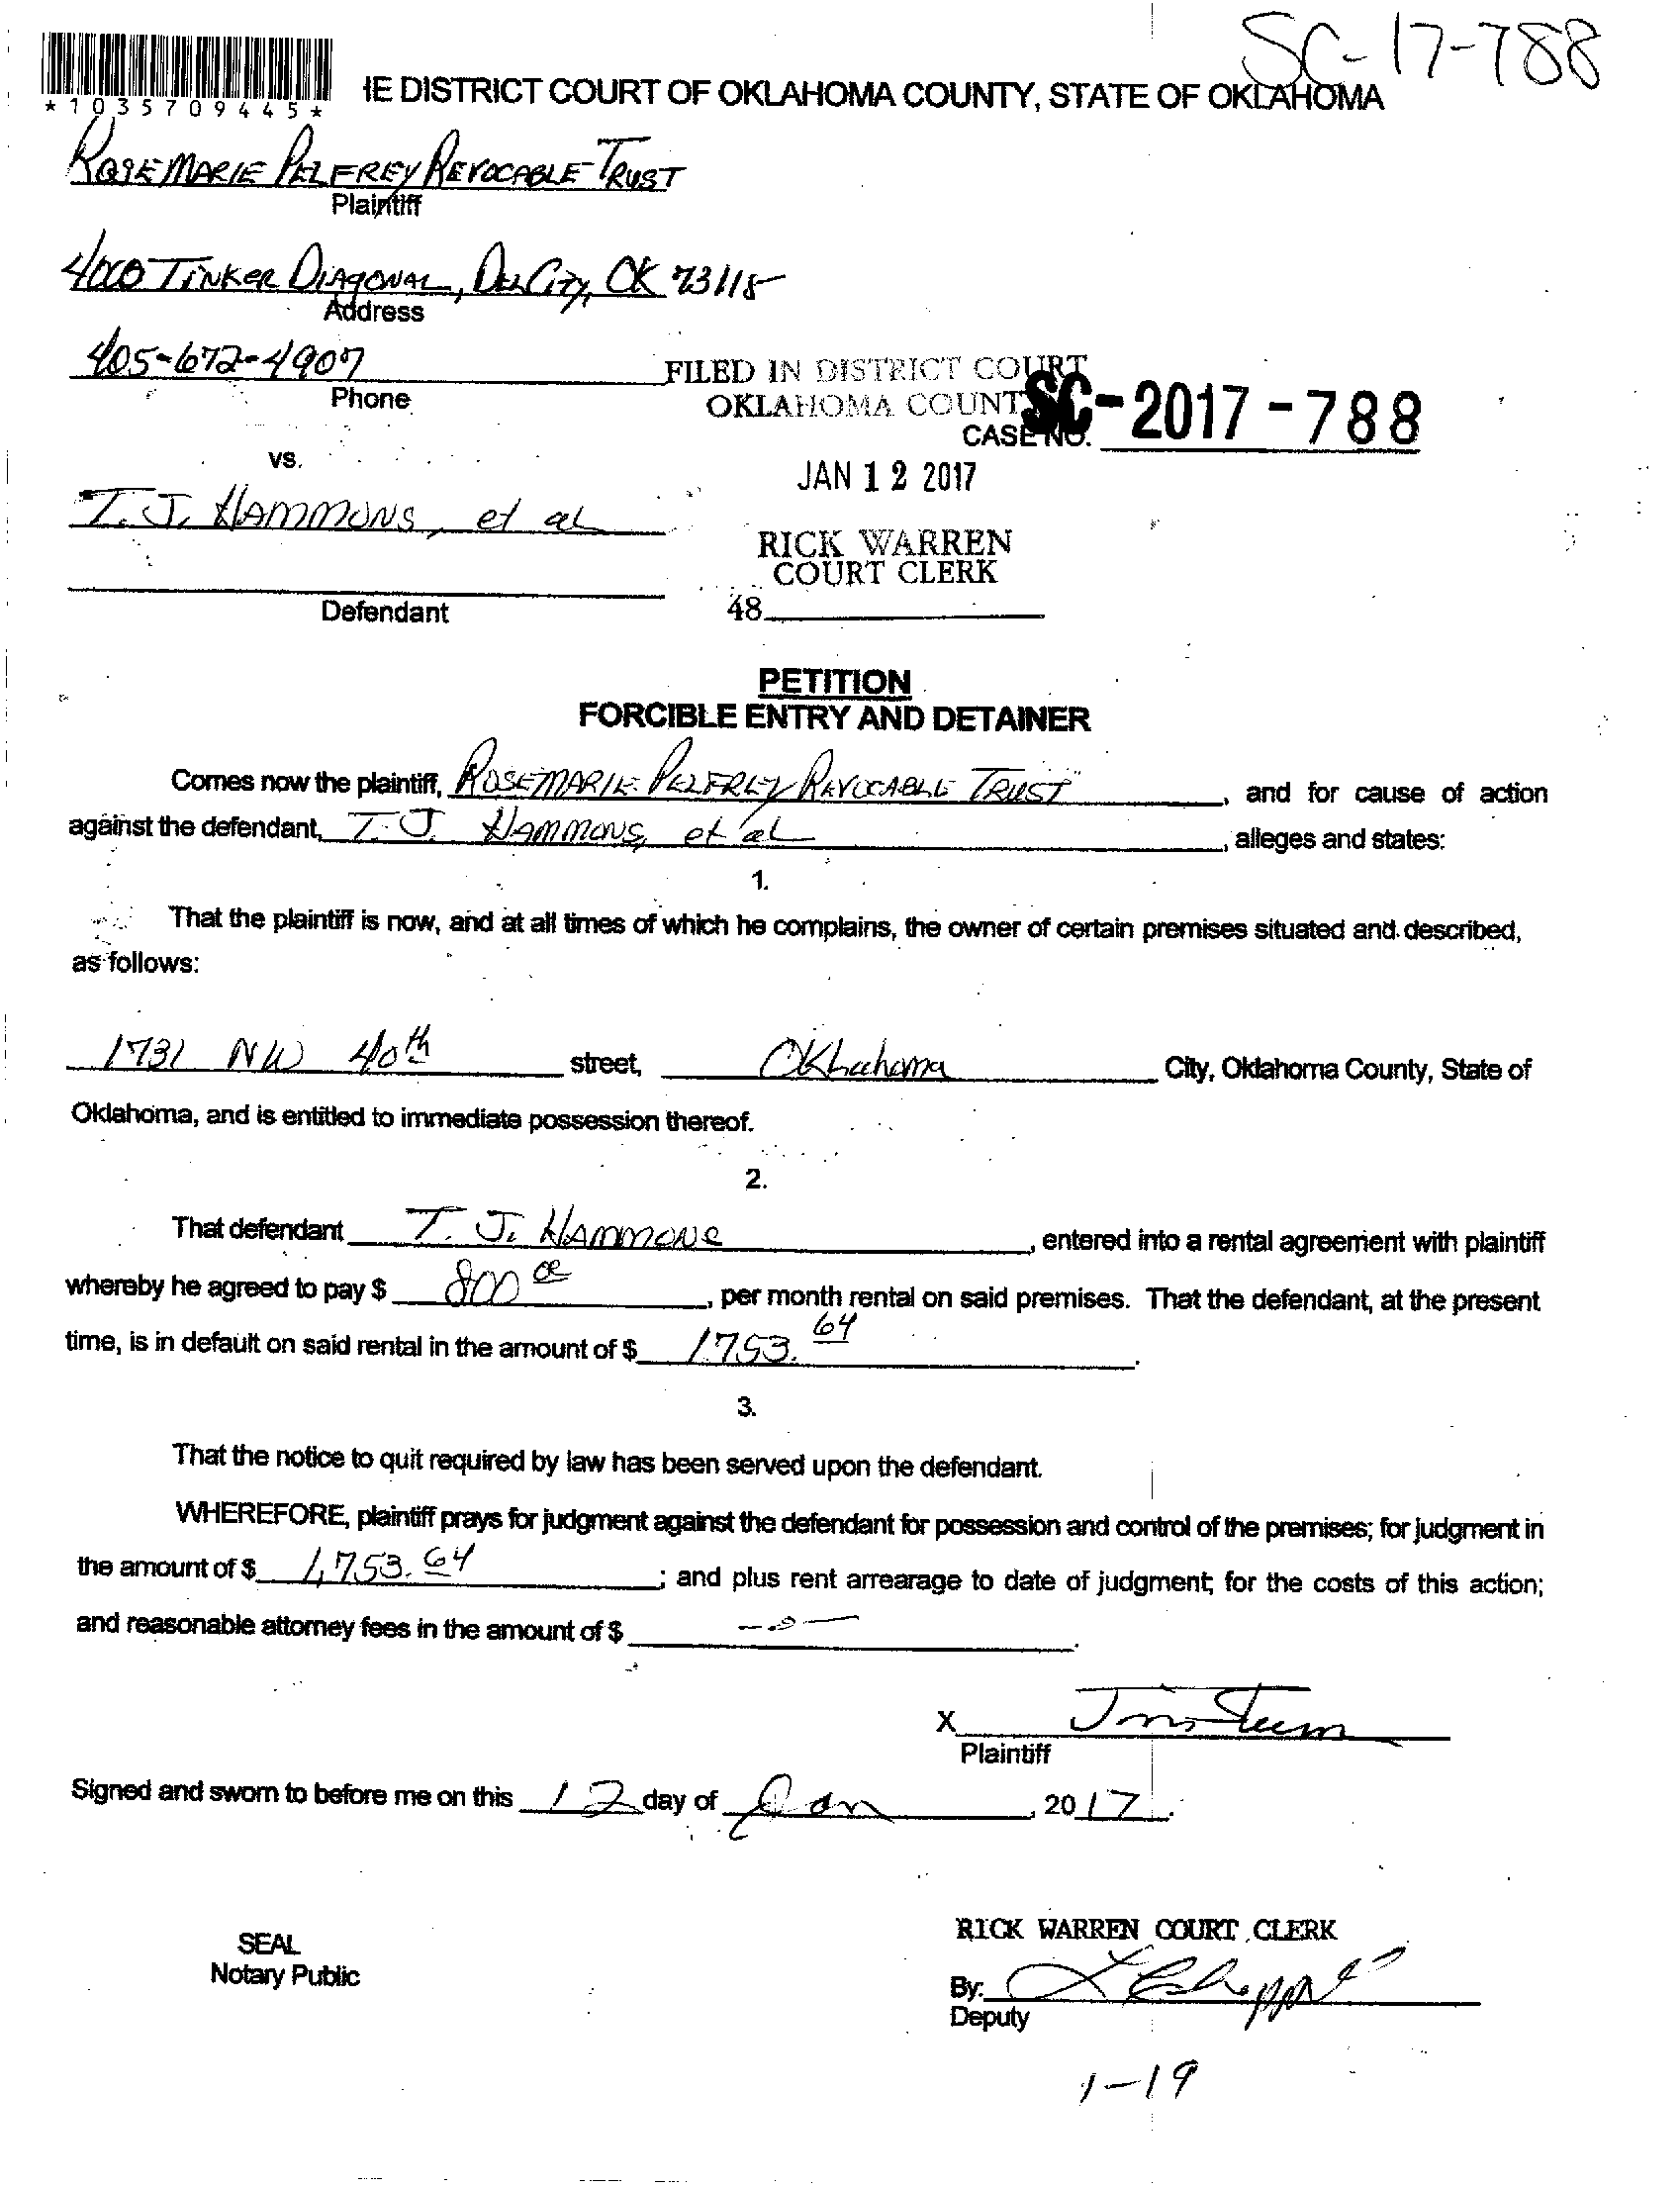 SC-17-788
*1035709445*
IE DISTRICT COURT OF OKLAHOMA COUNTY, STATE OF OKLAHOMA
ROSEMARIE PELFREY REVOCABLE TRUST
Plaintiff
4000 TINKER DIAGONAL, DEL CITY, OK 73115
Address
405-672-4907
Phone
FILED IN DISTRICT COURT
OKLAHOMA COUNTY
CASE NO. SC-2017-788
vs.
JAN 12 2017
T. J. HAMMONS, et al
RICK WARREN
COURT CLERK
48
Defendant
PETITION
FORCIBLE ENTRY AND DETAINER
Comes now the plaintiff, ROSEMARIE PELFREY REVOCABLE TRUST, and for cause of action
against the defendant, T. J. HAMMONS, et al, alleges and states:
1.
That the plaintiff is now, and at all times of which he complains, the owner of certain premises situated and described,
as follows:
1731 NW 40th street, Oklahoma City, Oklahoma County, State of
Oklahoma, and is entitled to immediate possession thereof.
2.
That defendant T. J. HAMMONS, entered into a rental agreement with plaintiff
whereby he agreed to pay $ 800 00, per month rental on said premises. That the defendant, at the present
time, is in default on said rental in the amount of $ 1753. 64.
3.
That the notice to quit required by law has been served upon the defendant.
WHEREFORE, plaintiff prays for judgment against the defendant for possession and control of the premises; for judgment in
the amount of $ 1,753.64; and plus rent arrearage to date of judgment; for the costs of this action;
and reasonable attorney fees in the amount of $ -0-.
X
Plaintiff
Signed and sworn to before me on this 12 day of Jan, 2017.
RICK WARREN COURT CLERK
SEAL
Notary Public
By:
Deputy
1-19